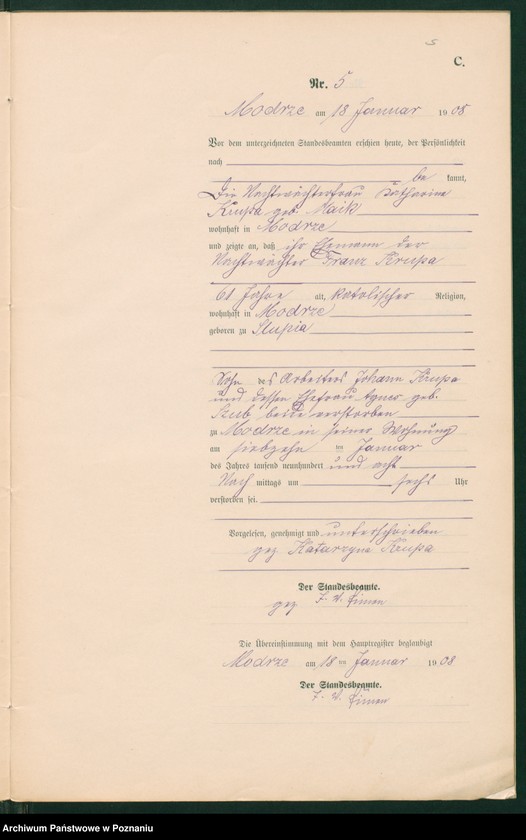 5
C.
Nr. 5
Modrze am 18 Januar 1908
Vor dem unterzeichneten Standesbeamten erschien heute, der Persönlichkeit
nach
be kannt,
Die Nachtwächterfrau Katharina
Krupa geb. Maik
wohnhaft in Modrze
und zeigte an, daß ihr Ehemann der
Nachtwächter Franz Krupa
61 Jahre alt, katolischer Religion,
wohnhaft in Modrze
geboren zu Slupia
Sohn des Arbeiters Johann Krupa
und dessen Ehefrau Agnes geb.
beide verstorben
zu Modrze in seiner Wohnung
am siebzehn ten Januar
des Jahres tausend neunhundert und acht
Nach mittags um sechs Uhr
verstorben sei.
Vorgelesen, genehmigt und unterschrieben
gez Katarzyna Krupa
Der Standesbeamte.
gez
Die Übereinstimmung mit dem Hauptregister beglaubigt
Modrze am 18 ten Januar 1908
Der Standesbeamte.
Archiwum Państwowe w Poznaniu